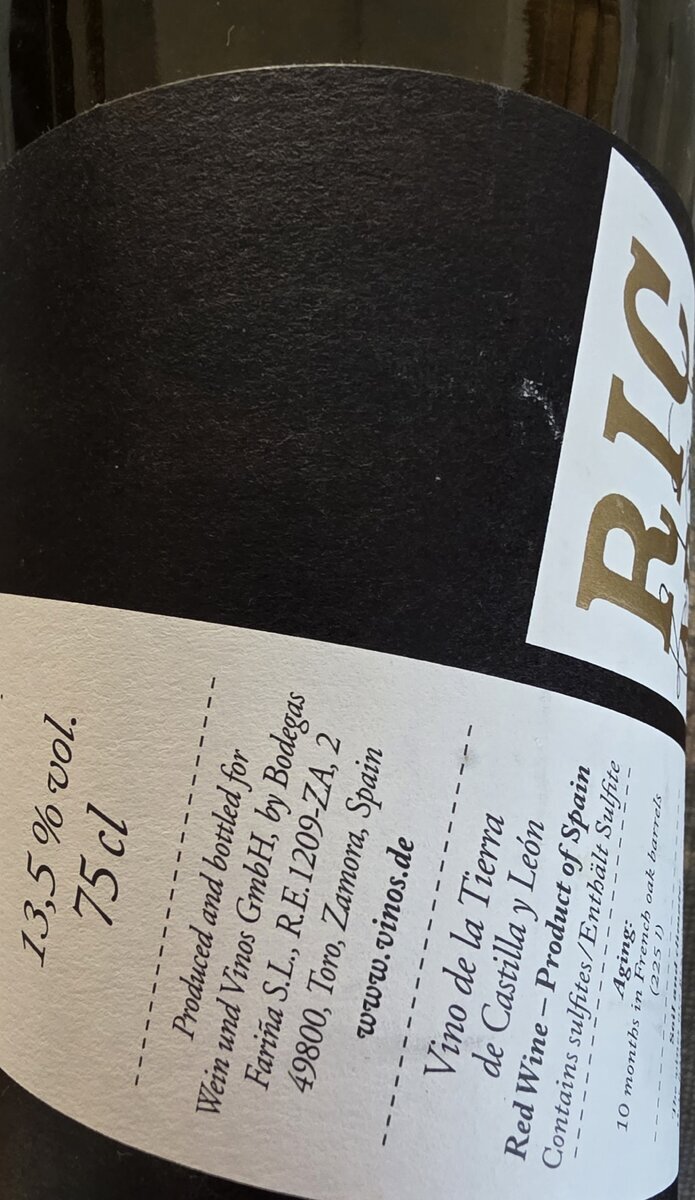 13,5 % vol.
75 cl
Produced and bottled for
Wein und Vinos GmbH, by Bodegas
Fariña S.L., R.E.1209-ZA, 2
49800, Toro, Zamora, Spain
www.vinos.de
Vino de la Tierra
de Castilla y León
Red Wine – Product of Spain
Contains sulfites/Enthält Sulfite
Aging:
10 months in French oak barrels
(225 l)
RIC